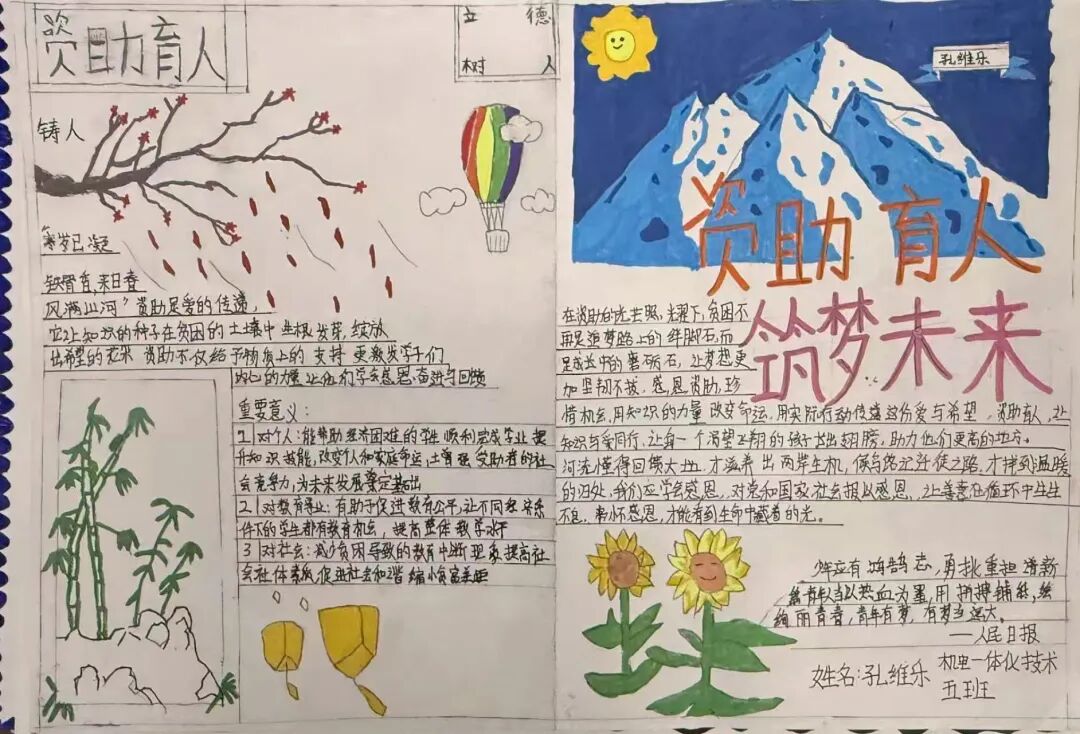 资助育人
立 德
树 人
铸人
寒岁已凝
铁骨香,来日春
风满山河"资助是爱的传递,
它让知识的种子在贫困的土壤中生根发芽,绽放
出希望的花朵 资助不仅给予物质上的支持 更激发学子们
内心的力量让他们学会感恩、奋进与回馈
重要意义:
1 对个人:能帮助经济困难的学生顺利完成学业 提
升知识技能,改变个人和家庭命运,增强受助者的社
会竞争力,为未来发展奠定基础
2 对教育事业:有助于促进教育公平,让不同经济条
件下的学生都有教育机会,提高整体教学水平
3 对社会:减少贫困导致的教育中断现象,提高社
会
促进社会和谐 缩小贫富差距
孔维乐
资助育人
筑梦未来
在资助的光芒照耀下,贫困不
再是追梦路上的绊脚石,而
是成长中的磨砺石,让梦想更
加坚韧不拔.感恩资助,珍
惜机会,用知识的力量改变命运,用实际行动传递这份爱与希望,资助育人,让
知识与爱同行,让每一个渴望飞翔的孩子长出翅膀,助力他们更高的地方。
河流懂得回馈大地,才滋养出两岸生机,候鸟铭记迁徙之路,才找到温暖
的归处,我们应学会感恩,对党和国家、社会报以感恩,让善意在循环中生生
不息,常怀感恩,才能看到生命中藏着的光。
少年应有鸿鹄志,勇挑重担
青年人当以热血为墨,用拼搏铺纸,绘
绚丽青春,青年有梦,有梦当远大。
—人民日报
姓名:孔维乐 机电一体化技术
五班